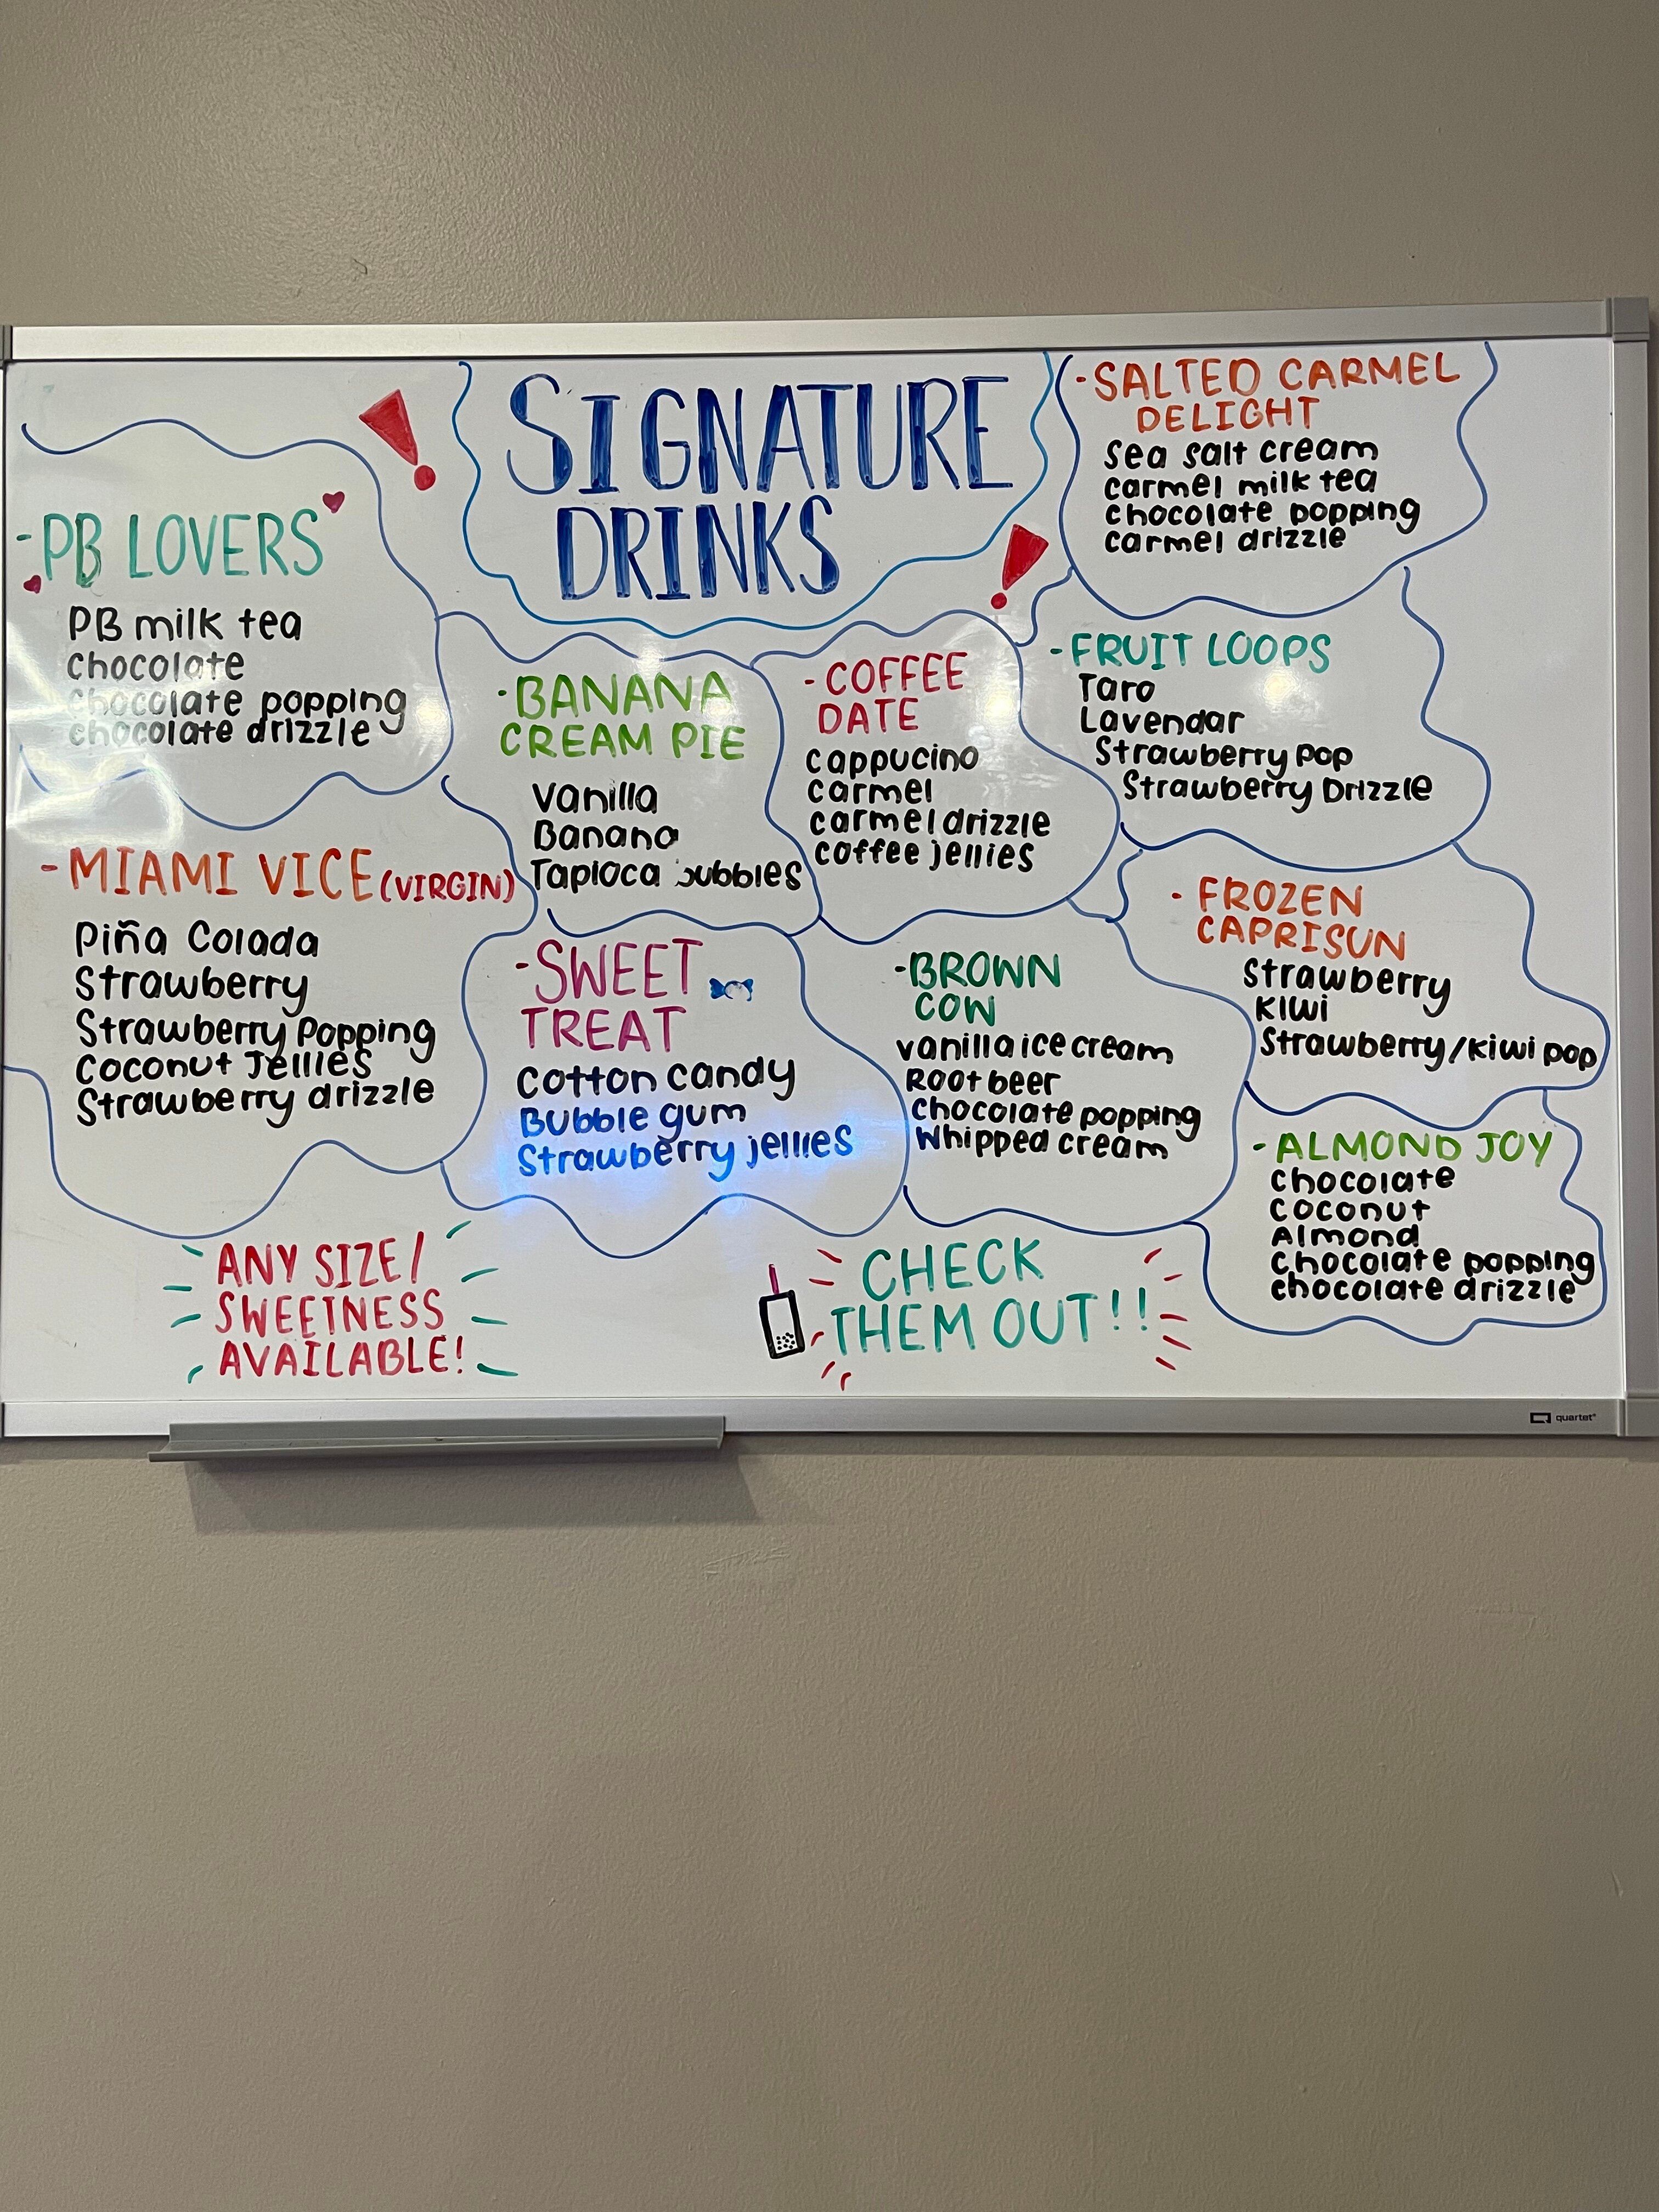 SIGNATURE
DRINKS
-PB LOVERS
PB milk tea
chocolate
chocolate popping
chocolate drizzle
-MIAMI VICE (VIRGIN)
Piña Colada
Strawberry
Strawberry Popping
Coconut Jellies
Strawberry drizzle
-BANANA
CREAM PIE
Vanilla
Banana
Tapioca bubbles
-SWEET
TREAT
Cotton candy
Bubble gum
Strawberry jellies
-COFFEE
DATE
cappucino
carmel
carmel drizzle
coffee jellies
-BROWN
COW
vanilla ice cream
Root beer
chocolate popping
Whipped cream
-SALTED CARMEL
DELIGHT
Sea salt cream
carmel milk tea
chocolate popping
carmel drizzle
-FRUIT LOOPS
Taro
Lavendar
Strawberry pop
Strawberry Drizzle
-FROZEN
CAPRISUN
Strawberry
Kiwi
Strawberry/Kiwi pop
-ALMOND JOY
chocolate
coconut
Almond
chocolate popping
chocolate drizzle
ANY SIZE/
SWEETNESS
AVAILABLE!
CHECK
THEM OUT!!
quartet®